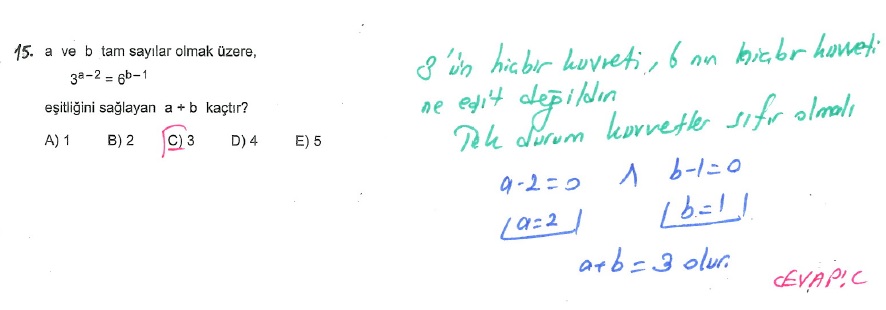 15. a ve b tam sayılar olmak üzere,
3^{a-2} = 6^{b-1}
eşitliğini sağlayan a + b kaçtır?
A) 1 B) 2 C) 3 D) 4 E) 5
3'ün hiçbir kuvveti, 6 nın hiçbr kuvveti
ne eşit değildin
Tek durum kuvvetler sıfır olmalı
a-2=0 ∧ b-1=0
a=2 b=1
a+b=3 olur.
CEVAP: C